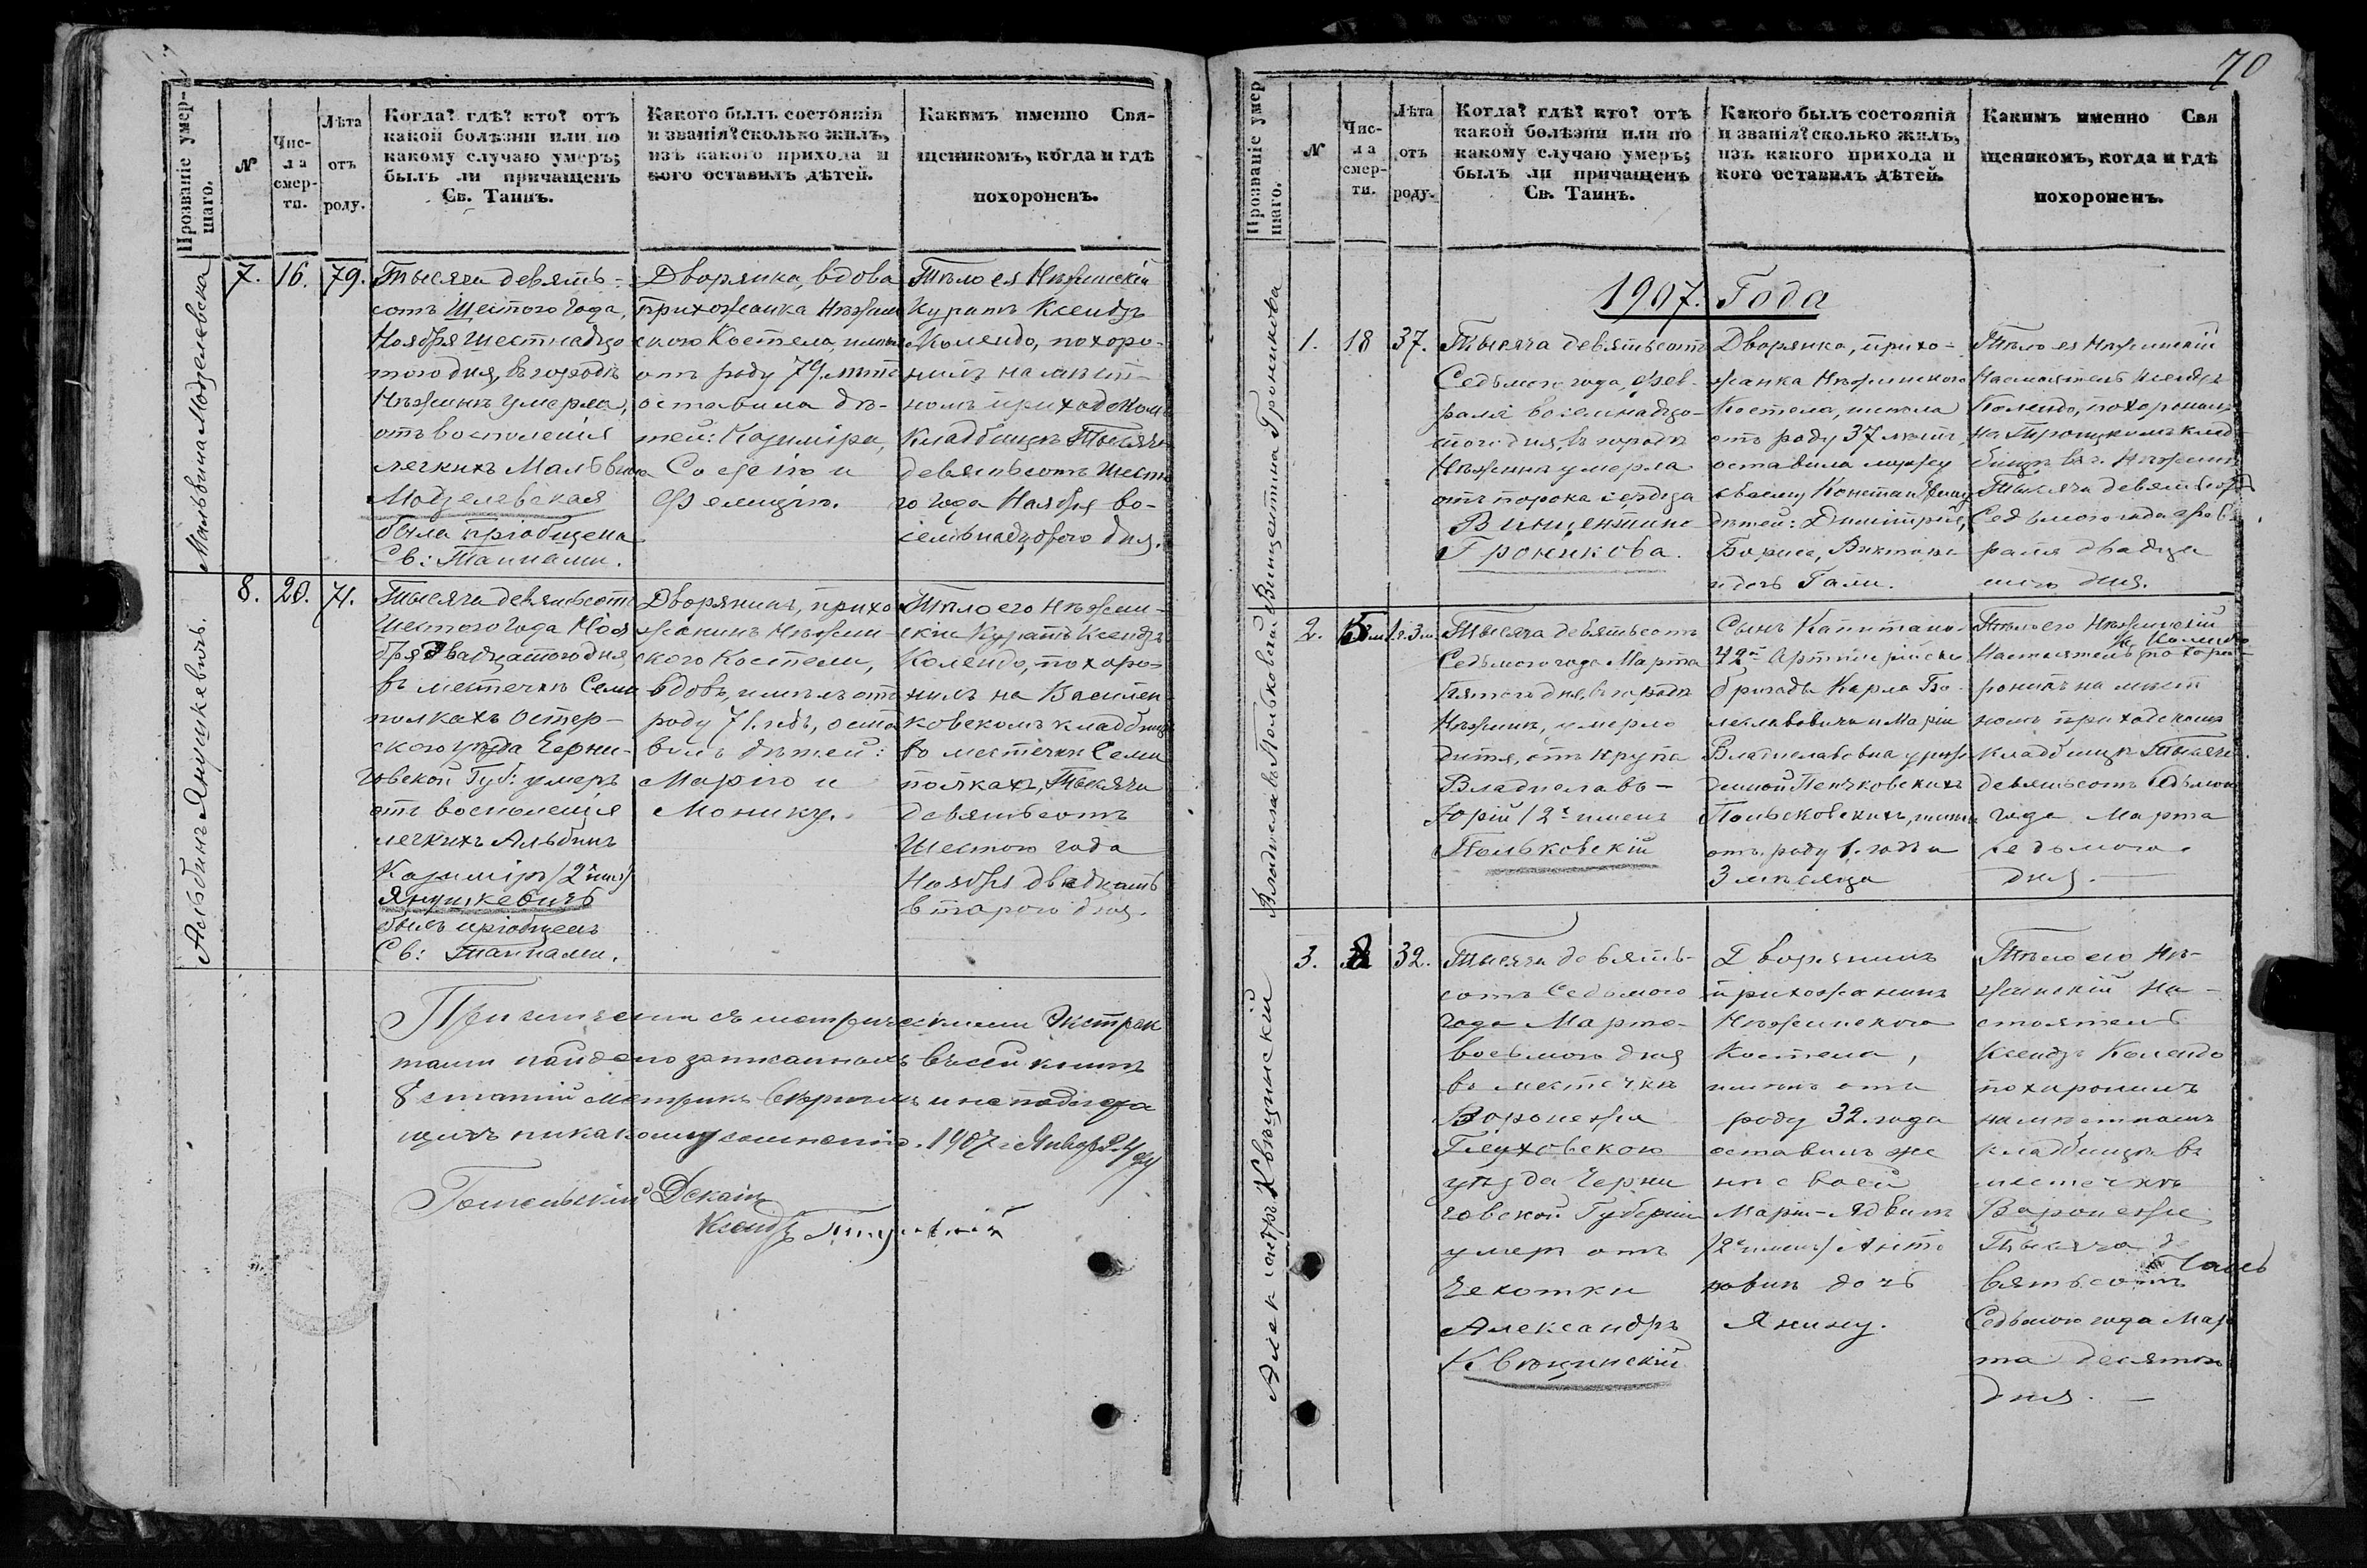 70
Прозваніе умер-
шаго.
№
Чис-
ла
смер-
ти.
Лѣта
отъ
роду.
Когда? гдѣ? кто? отъ
какой болѣзни или по
какому случаю умеръ;
былъ ли причащенъ
Св. Таинъ.
Какого былъ состоянія
и званія? сколько жилъ,
изъ какого прихода и
кого оставилъ дѣтей.
Какимъ именно Свя-
щеникомъ, когда и гдѣ
похороненъ.
Мальвина Модзелевска
7.
16.
79.
Тысяча девять-
сотъ Шестого года,
Ноября шестнадца
таго дня, въ городѣ
Нѣжинѣ умерла,
отъ воспаленія
легкихъ Мальвина
Модзелевская
была пріобщена
Св: Тайнами.
Дворянка, вдова
прихожанка Нѣжин
скаго Костела, имѣла
отъ роду 79. лѣтъ
оставила дѣ-
тей: Казиміра,
Софію и
Фелицію.
Тѣло ея Нѣжинскій
Куратъ Ксендзъ
Колендо, похоро-
нилъ на мѣст-
номъ приходскомъ
кладбищѣ Тысяча
девятьсотъ шесто
го года Ноября во-
семьнадцатого дня.
Альбинъ Янушкевичъ.
8.
20.
71.
Тысяча девятьсотъ
Шестого года Нояб
бря Двадцатого дня,
въ местечкѣ Семи
полкахъ Остер-
скаго уѣзда Черни-
говской Губ: умеръ
отъ воспаленія
легкихъ Альбинъ
Казиміръ /2 имя/
Янушкевичъ
былъ пріобщенъ
Св: Тайнами.
Дворянинъ, прихо
жанинъ Нѣжин-
скаго Костела,
вдовъ, имѣлъ отъ
роду 71. годъ, оста
вилъ дѣтей:
Марію и
Монику.
Тѣло его Нѣжин-
скій Куратъ Ксендзъ
Колендо, похоро-
нилъ на Василен-
ковскомъ кладбищѣ
въ местечкѣ Семи
полкахъ, Тысяча
девятьсотъ
Шестого года
Ноября двадцать
второго дня.
При сличеніи съ метрическими Экстрак
тами найдено записанныхъ въ сей книгѣ
8 статей метрикъ вѣрными и не подлежа
щихъ никакому сомненію. 1907 г. Января 24 дня
Гомельскій Деканъ
Ксендзъ
Прозваніе умер
шаго.
№
Чис-
ла
смер-
ти.
Лѣта
отъ
роду.
Когда? гдѣ? кто? отъ
какой болѣзни или по
какому случаю умеръ;
былъ ли причащенъ
Св. Таинъ.
Какого былъ состоянія
и званія? сколько жилъ,
изъ какого прихода и
кого оставилъ дѣтей.
Какимъ именно Свя
щеникомъ, когда и гдѣ
похороненъ.
1907. Года
Винцентина Гроникова
1.
18
37.
Тысяча девятьсотъ
Седьмого года, Фев-
раля восемнадца-
того дня, въ городѣ
Нѣжинѣ умерла
отъ порока сердца
Винцентина
Гроникова.
Дворянка, прихо-
жанка Нѣжинскаго
Костела, имѣла
отъ роду 37 лѣтъ,
оставила мужу
своему Константину
дѣтей: Димитрія,
Бориса, Виктора
и дочь Гали.
Тѣло ея Нѣжинскій
Настоятель Ксендзъ
Колендо, похоронилъ
на Троицкомъ клад-
бищѣ въ г. Нѣжинѣ
Тысяча девятьсотъ
Седьмого года Фев-
раля двадца
того дня.
Владиславъ Польковскій
2.
5
1 г. 3 м.
Тысяча девятьсотъ
Седьмого года Марта
Пятого дня, въ городѣ
Нѣжинѣ, умерло
дитя, отъ крупа
Владиславъ-
Юрій /2 имени
Польковскій
Сынъ Капитана
42й Артилерійской
бригады Карла Бо-
леславовича и Маріи
Владиславовна урож
денной Пенчковскихъ
Польковскихъ, имѣлъ
отъ роду 1. годъ и
3 мѣсяца
Тѣло его Нѣжинскій
Кс. Колендо
Настоятель похо-
ронилъ на мѣст
номъ приходскомъ
кладбищѣ Тысяча
девятьсотъ Седьмого
года Марта
седьмого
дня.
Александръ Квѣцинскій
3.
8
32.
Тысяча девять-
сотъ Седьмого
года Марта
восьмого дня
въ местечкѣ
Воронежѣ
Глуховского
уѣзда Черни
говской Губерніи
умеръ отъ
чехотки
Александръ
Квѣцинскій
Дворянинъ
прихожанинъ
Нѣжинскаго
Костела,
имѣлъ отъ
роду 32. года
оставилъ же
нѣ своей
Маріи-Ядвигѣ
/2 имени/ Анто
новнѣ дочь
Янину.
Тѣло его Нѣ-
жинскій На-
стоятель
Ксендзъ Колендо
похоронилъ
на мѣстномъ
кладбищѣ въ
местечкѣ
Воронежѣ
Тысяча де
вятьсотъ
Седьмого года Мар
та десятого
дня.